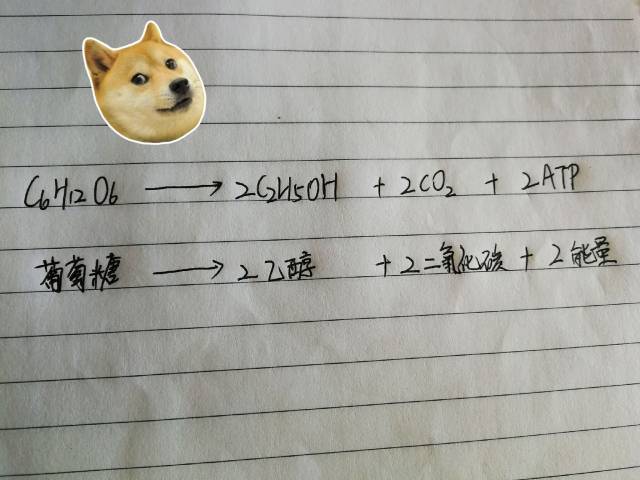 C6H12O6 → 2C2H5OH + 2CO2 + 2ATP
葡萄糖 → 2乙醇 + 2二氧化碳 + 2能量